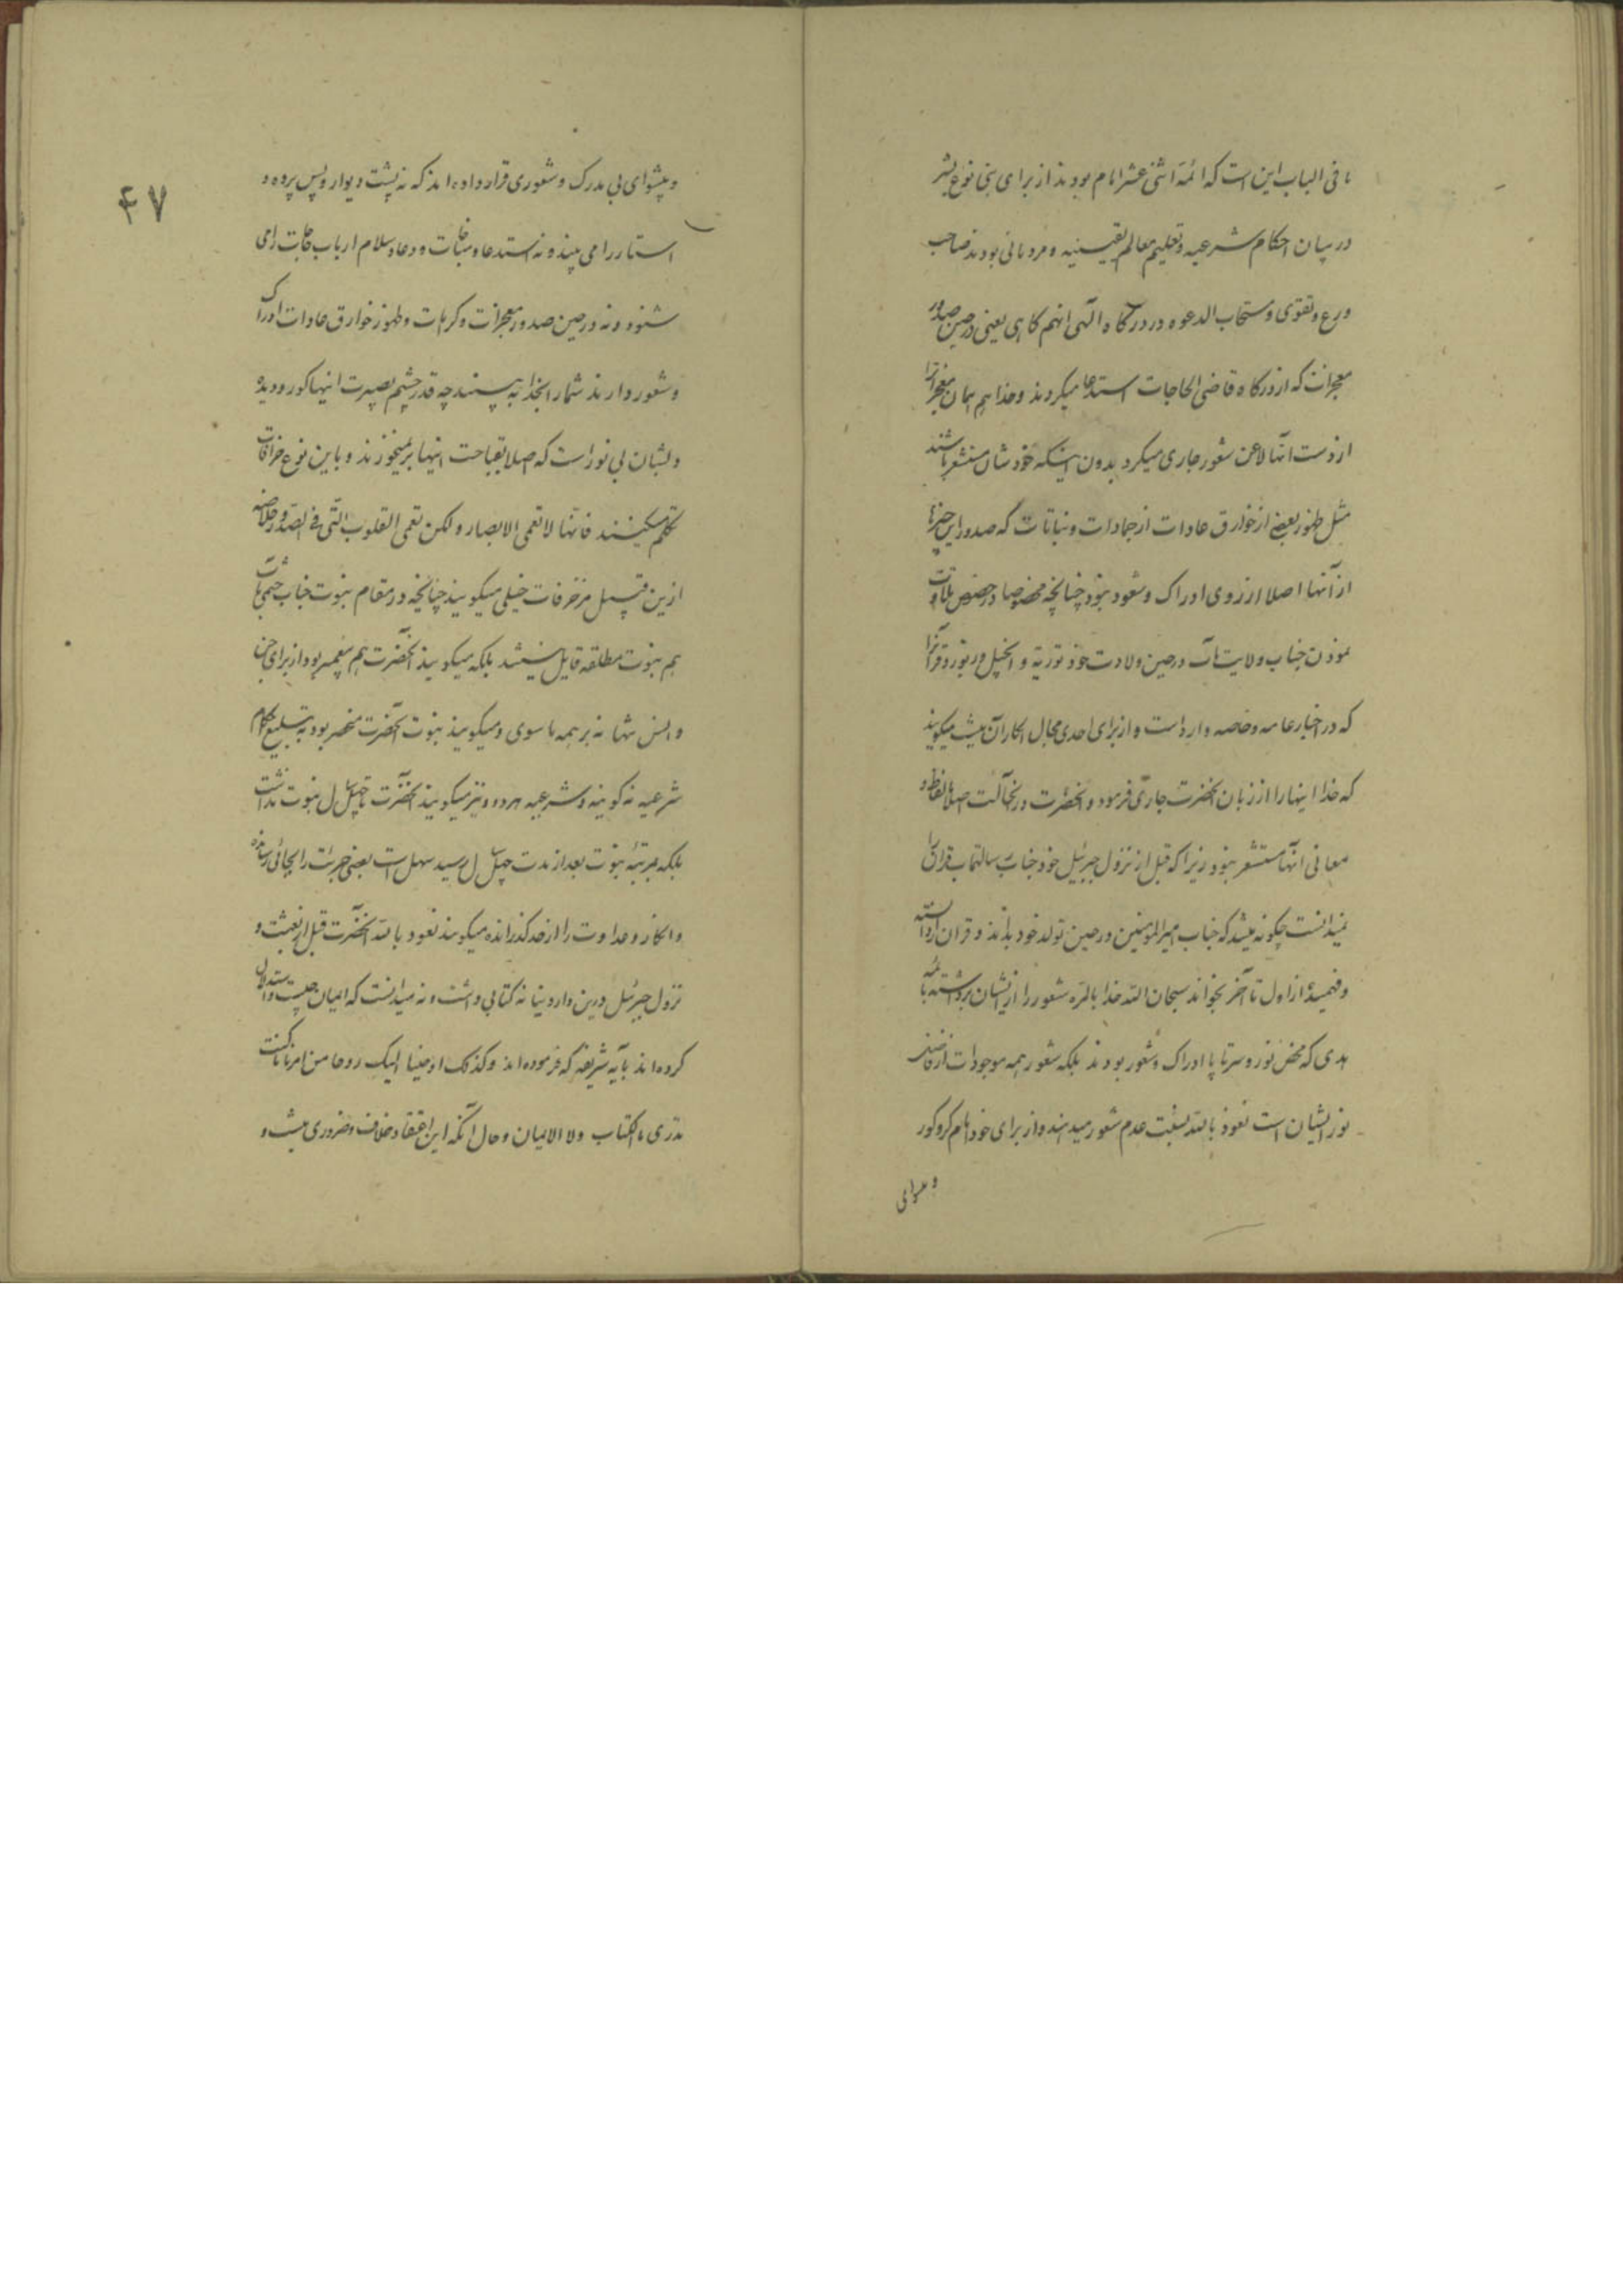 ما فی الباب این است که ائمة اثنی عشر امام بودند از برای بنی نوع بشر
در بیان احکام شرعیه و تعلیم معالم یقینیه و مردمانی بودند صاحب
ورع و تقوی و مستجاب الدعوه در درگاه الهی انهم کاهی یعنی در حین صدور
معجزات که از درکاه قاضی الحاجات استدعا میکردند و خدا هم همان معجزاترا
از دست آنها لاعن شعور جاری میکرد بدون اینکه خودشان مستشعر باشند
مثل ظهور بعضی از خوارق عادات از جمادات و نباتات که صدور این چیزها
از آنها اصلا از روی ادراک و شعور نبود چنانچه مخصوصا در خصوص تلاوت
نمودن جناب ولایت مآب در حین ولادت خود توریة و انجیل و زبور و قرآنرا
که در اخبار عامه و خاصه وارد است و از برای احدی مجال انکار آن نیست میکویند
که خدا اینها را از زبان آنحضرت جاری فرمود و آنحضرت در آنحالت اصلا بالفاظ و
معانی آنها مستشعر نبود زیرا که قبل از نزول جبرئیل خود جناب رسالتماب قرآن را
نمیدانست چکونه میشد که جناب امیرالمومنین در حین تولد خود بداند و قران را دانسته
و فهمیده از اول تا آخر بخواند سبحان الله خدا بالمره شعور را از ایشان برداشته بائمه
هدی که محض نور و سرتا پا ادراک و شعور بودند بلکه شعور همه موجودات از فاضل
نور ایشان است نعوذ بالله نسبت عدم شعور میدهند و از برای خود امام کر و کور
و پیشوای
۴۷
و پیشوای بی مدرک و شعوری قرار داده اند که نه پشت دیوار و پس پرده و
استار را می بیند و نه استدعا و مناجات و دعا و سلام ارباب حاجات را می
شنود و نه در حین صدور معجزات و کرامات و ظهور خوارق عادات ادراک
و شعور دارند شما را بخدا به بینید چه قدر چشم بصیرت اینها کور و دیده
دلشان بی نور است که اصلا بقباحت اینها برنمیخورند و باین نوع خرافات
تکلم میکنند فانها لا تعمی الابصار و لکن تعمی القلوب التی فی الصدور خلاصه
ازین قبیل مزخرفات خیلی میکویند چنانچه در مقام نبوت جناب ختمی مآب
هم بنبوت مطلقه قایل نیستند بلکه میکویند آنحضرت هم پیغمبر بود از برای جن
و انس تنها نه بر همه ما سوی و میکویند نبوت آنحضرت منحصر بود به تبلیغ احکام
شرعیه نه کونیه و شرعیه هردو و نیز میکویند آنحضرت تا چهل سال نبوت نداشت
بلکه بمرتبه نبوت بعد از مدت چهل سال رسید سهل است بعضی جرئت را بجائی رسانده
و انکار و عداوت را از حد گذرانده میکویند نعوذ بالله آنحضرت قبل از بعثت و
نزول جبرئیل درین دار دنیا نه کتابی داشت و نه میدانست که ایمان چیست و استدلال
کرده اند بآیه شریفه که فرموده اند و کذلک اوحینا الیک روحا من امرنا ما کنت
تدری ما الکتاب و لا الایمان و حال آنکه این اعتقاد خلاف ضروری مذهب و